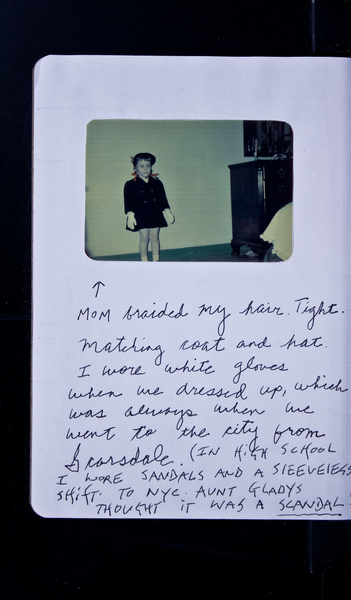 ↑
MOM braided my hair. Tight.
Matching coat and hat.
I wore white gloves
when we dressed up, which
was always when we
went to the city from
Scarsdale. (IN HIGH SCHOOL
I WORE SANDALS AND A SLEEVELESS
SHIFT. TO NYC. AUNT GLADYS
THOUGHT IT WAS A SCANDAL